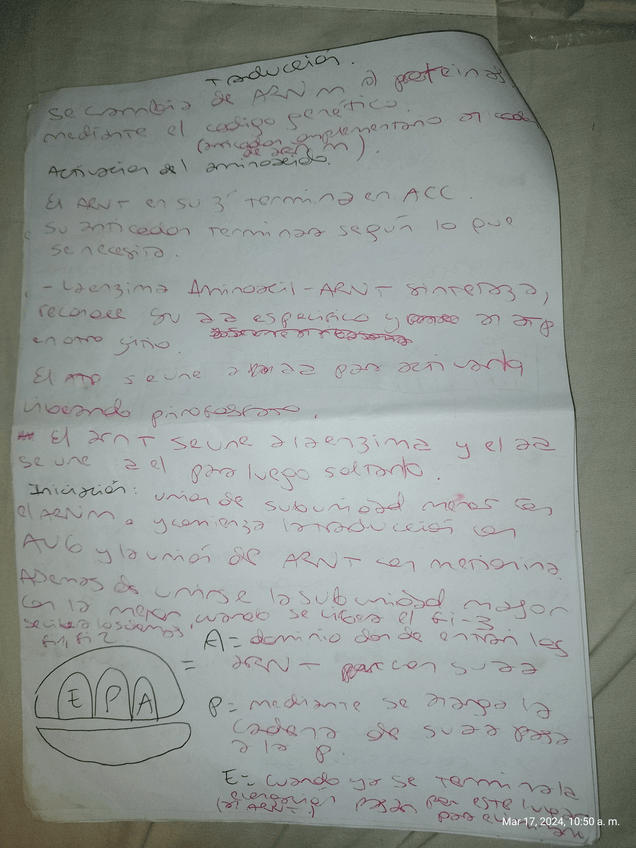 Traducción.
Se cambia de ARNm a proteinas
mediante el codigo genético.
(anticodon complementario al
de ARN m).
Activacion del aminoacido.
El ARNT en su 3' termina en ACC.
Su anticodon terminara según lo que
se necesita.
- La enzima Aminoacil-ARNT sintetaza,
reconoce su aa especifico y al ATP
en otro sitio.
El ATP se une al aa para activarla
liberando pirofosfato.
El ARNT se une a la enzima y el aa
se une a el para luego soltarlo.
Iniciación: union de subunidad menor con
el ARNm y comienza la traducción con
AUG y la unión de ARNT con metionina.
Ademas de unirse la subunidad mayor
con la menor, cuando se libera el fi-3
se libera los demas,
fi1, fi2
A = dominio donde entran los
ARNT con su aa
E P A =
P = mediante se alarga la
cadena de su aa pasa
a la P.
E = cuando ya se termina la
elongacion pasan por este lugar
(al ARNT) para
Mar 17, 2024, 10:50 a. m.